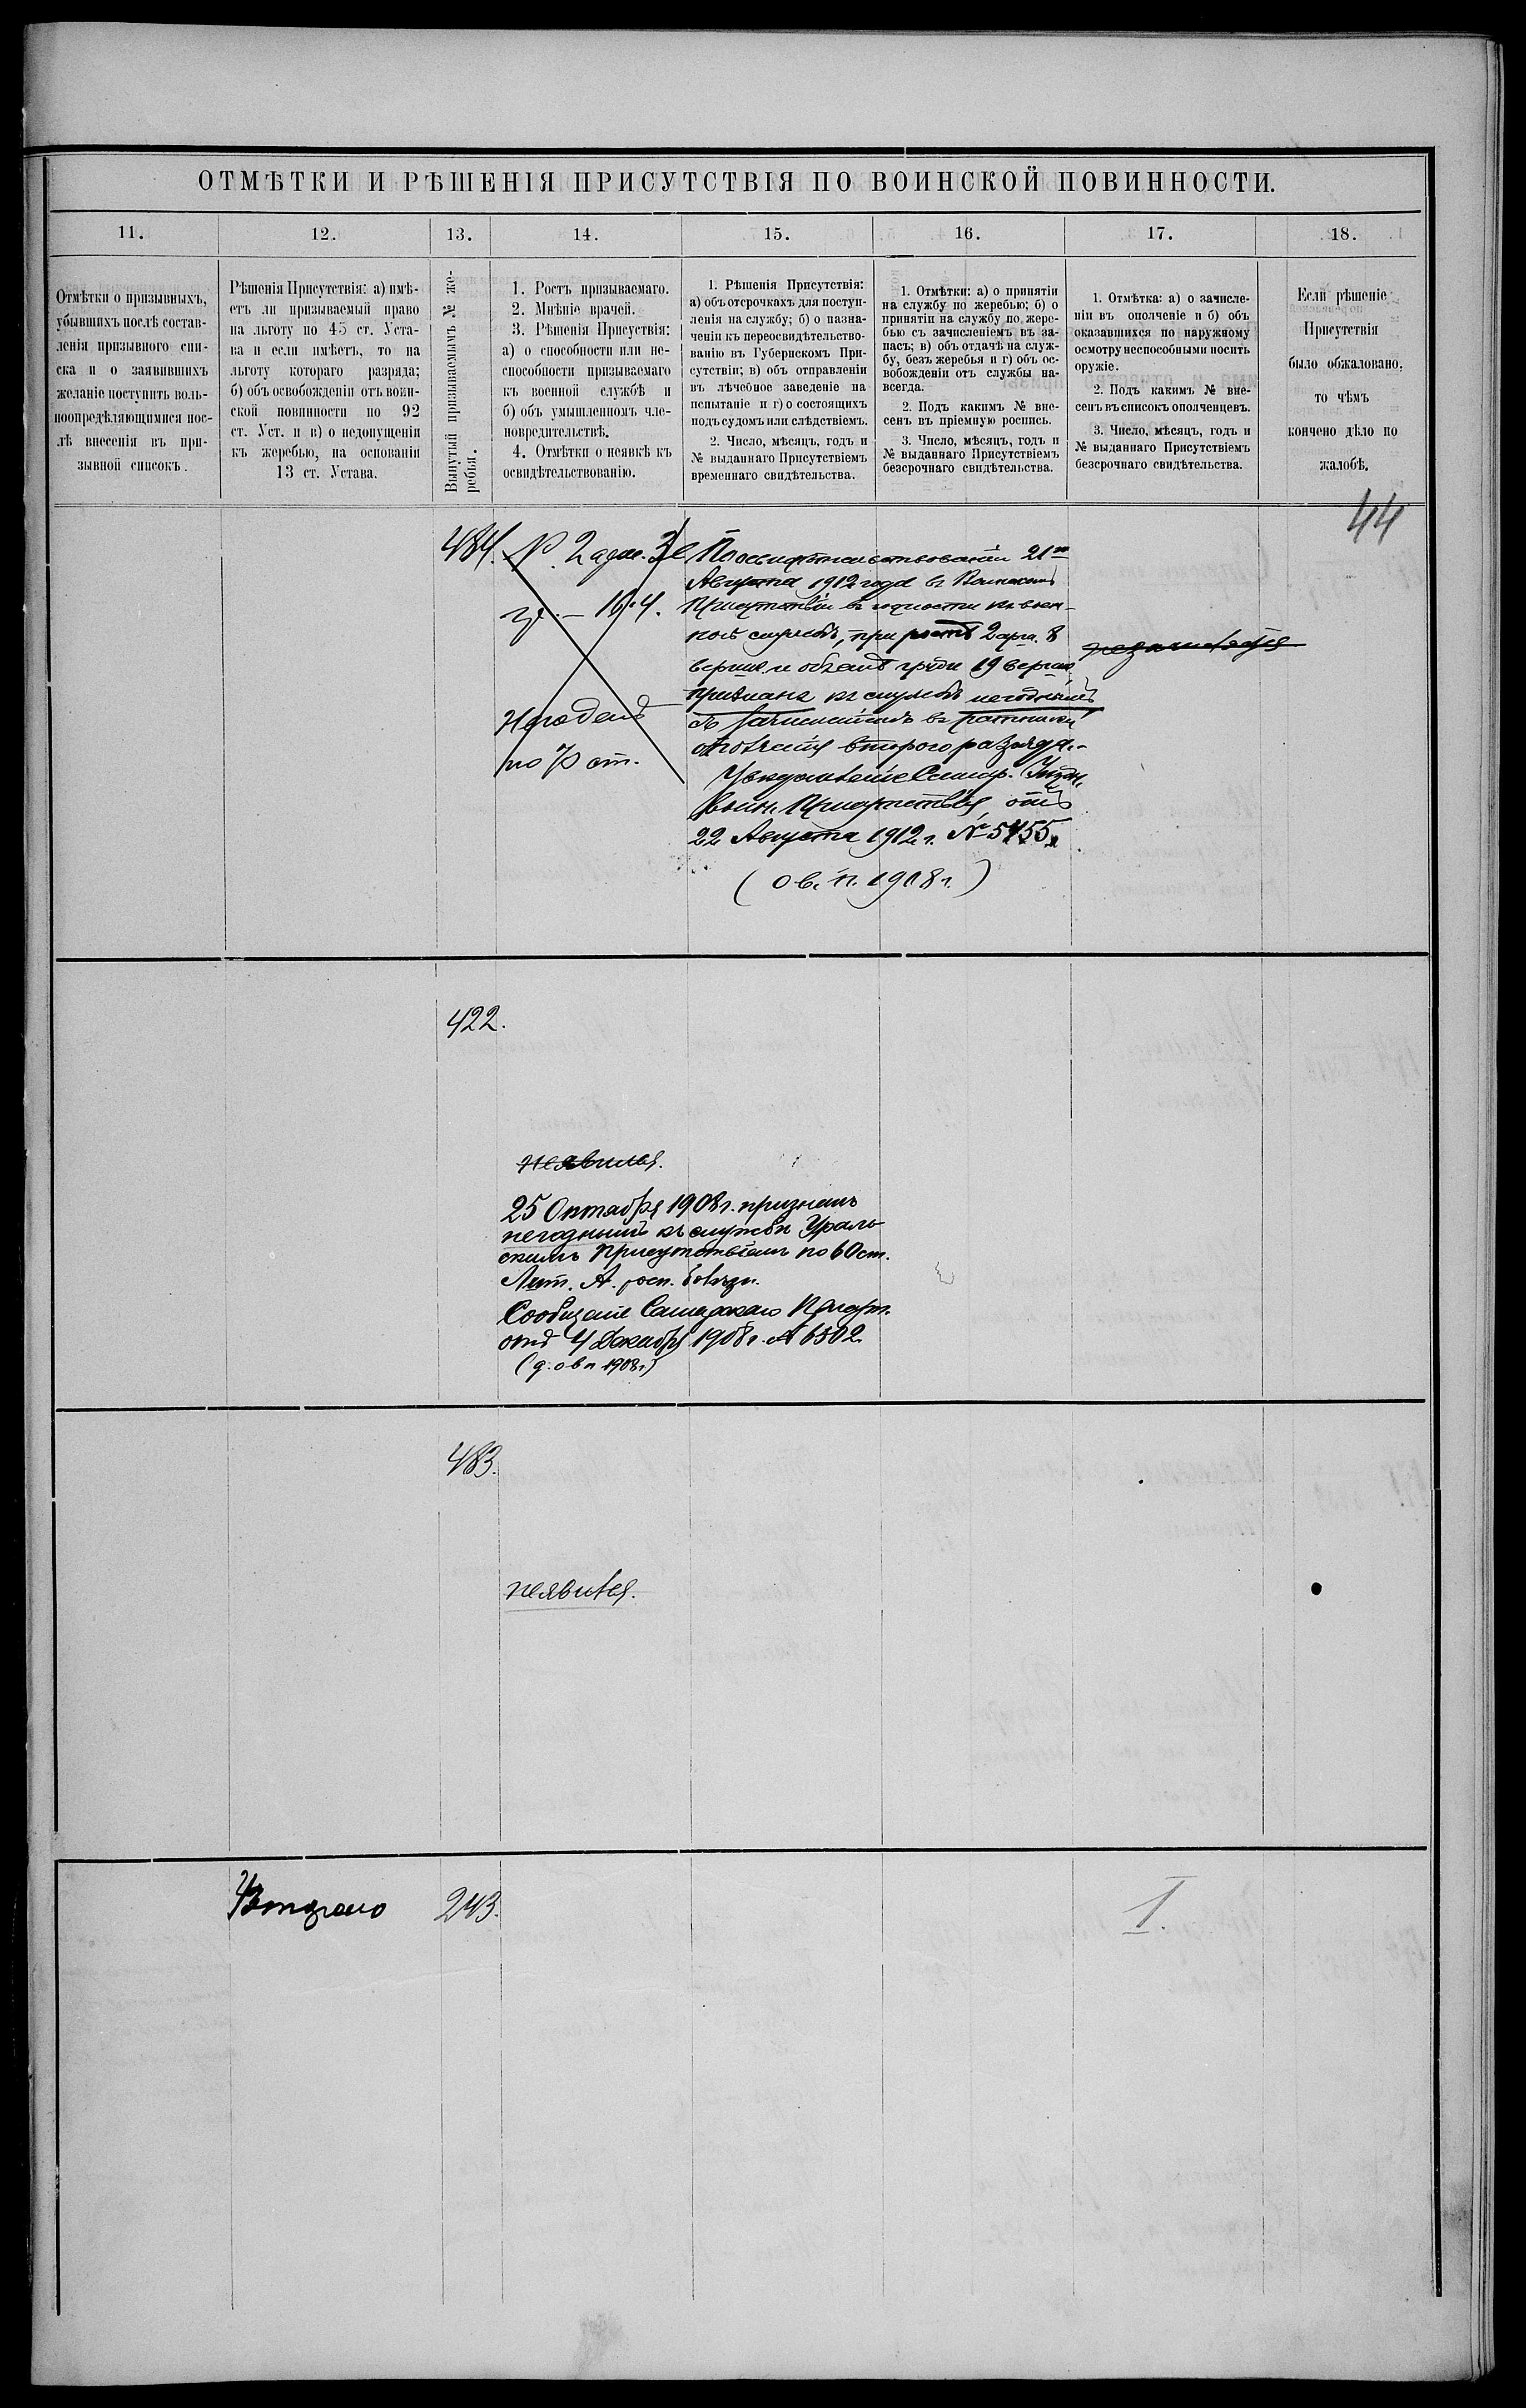 ОТМѢТКИ И РѢШЕНІЯ ПРИСУТСТВІЯ ПО ВОИНСКОЙ ПОВИННОСТИ.
11.
12.
13.
14.
15.
16.
17.
18.
Отмѣтки о призывныхъ,
убывшихъ послѣ состав-
ленія призывного спи-
ска и о заявившихъ
желаніе поступить воль-
ноопредѣляющимися пос-
лѣ внесенія въ при-
зывной списокъ.
Рѣшенія Присутствія: а) имѣ-
етъ ли призываемый право
на льготу по 45 ст. Уста-
ва и если имѣетъ, то на
льготу котораго разряда;
б) объ освобожденіи отъ воин-
ской повинности по 92
ст. Уст. и в) о недопущеніи
къ жеребью, на основаніи
13 ст. Устава.
Вынутый призываемымъ № же-
ребья.
1. Ростъ призываемаго.
2. Мнѣніе врачей.
3. Рѣшенія Присуствія:
а) о способности или не-
способности призываемаго
къ военной службѣ и
б) объ умышленномъ чле-
новредительствѣ.
4. Отмѣтки о неявкѣ къ
освидѣтельствованію.
1. Рѣшенія Присутствія:
а) объ отсрочкахъ для поступ-
ленія на службу; б) о назна-
ченіи къ переосвидѣтельство-
ванію въ Губернскомъ При-
сутствіи; в) объ отправленіи
въ лѣчебное заведеніе на
испытаніе и г) о состоящихъ
подъ судомъ или слѣдствіемъ.
2. Число, мѣсяцъ, годъ и
№ выданнаго Присутствіемъ
временнаго свидѣтельства.
1. Отмѣтки: а) о принятіи
на службу по жеребью; б) о
принятіи на службу по жере-
бью съ зачисленіемъ въ за-
пасъ; в) объ отдачѣ на служ-
бу, безъ жеребья и г) объ ос-
вобожденіи отъ службы на-
всегда.
2. Подъ какимъ № вне-
сенъ въ пріемную роспись.
3. Число, мѣсяцъ, годъ и
№ выданнаго Присутствіемъ
безсрочнаго свидѣтельства.
1. Отмѣтка: а) о зачисле-
ніи въ ополченіе и б) объ
оказавшихся по наружному
осмотру неспособными носить
оружіе.
2. Подъ какимъ № вне-
сенъ въ списокъ ополченцевъ.
3. Число, мѣсяцъ, годъ и
№ выданнаго Присутствіемъ
безсрочнаго свидѣтельства.
Если рѣшеніе
Присутствія
было обжаловано,
то чѣмъ
кончено дѣло по
жалобѣ.
44
484.
Р. 2 арш.
гр. — 16.4.
Негоденъ
по ст.
По освидѣтельствованіи 21го
Августа 1912 года въ Воинскомъ
Присутствіи въ годности къ воен-
ной службѣ, при ростѣ 2 арш. 8
верш. и объемѣ груди 19 верш.
признанъ къ службѣ негоднымъ
съ зачисленіемъ въ ратники
ополченія второго разряда.-
Увѣдомленіе Самар. Уѣздн.
Воин. Присутствія, отъ
22 Августа 1912 г. №
(о в. п. 1908 г.)
422.
неявился.
25 Октября 1908 г. признанъ
негоднымъ къ службѣ Ураль-
скимъ присутствіемъ по 60 ст.
Лит. А. росп. болѣзн.
Сообщеніе Присут.
отъ 4 Декабря 1908 г. № 6502
(д. о в п 1908 г.)
483.
неявился.
Втораго
243.
I.